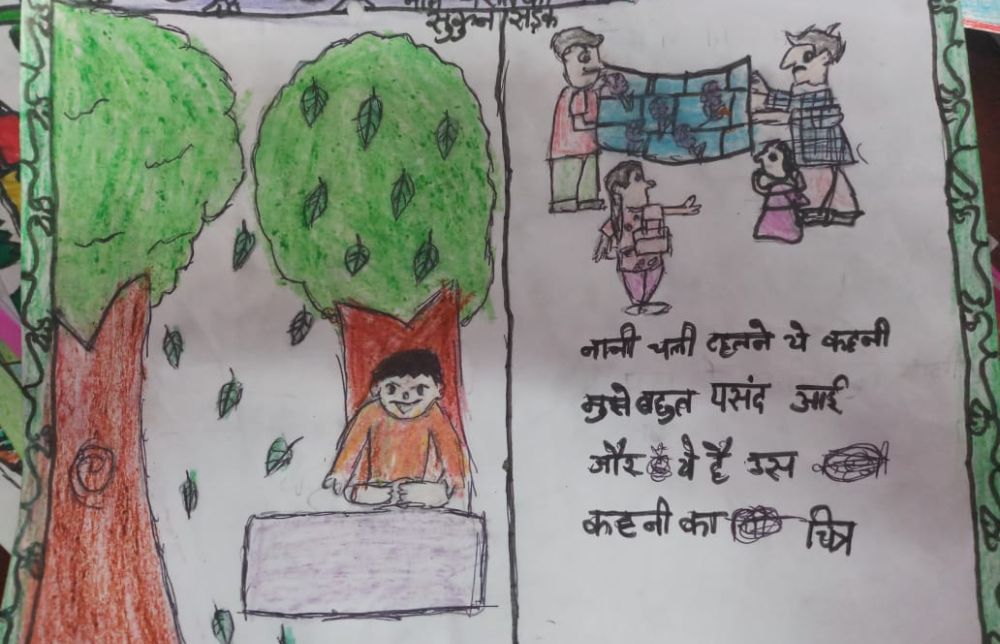 सुकुन सड़क
नानी चली टहलने ये कहनी
मुझे बहुत पसंद आई
और ये है उस
कहनी का चित्र